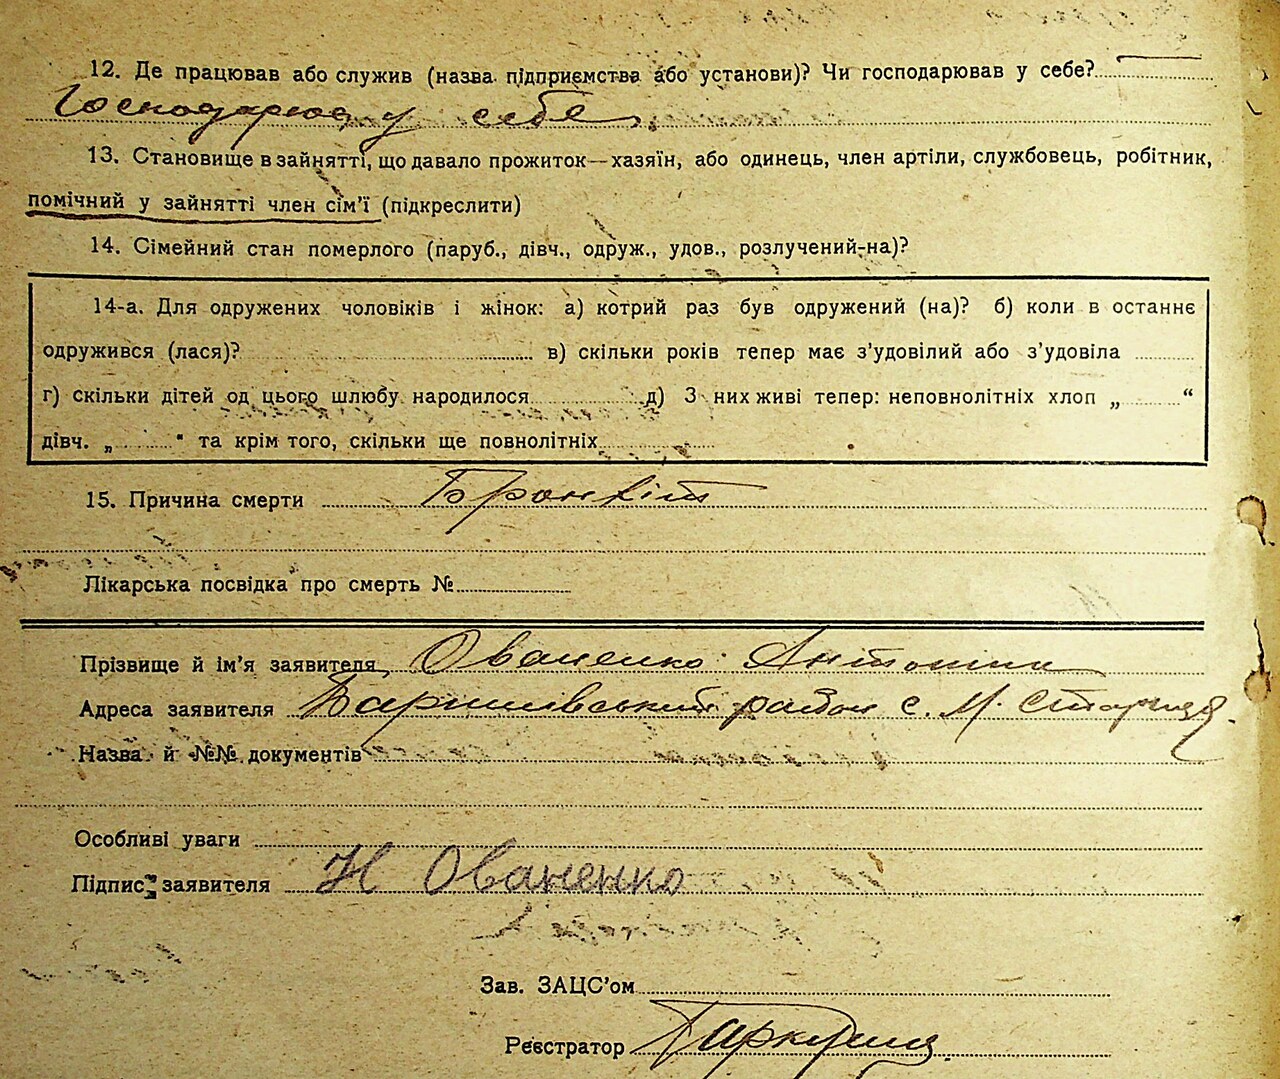 12. Де працював або служив (назва підприємства або установи)? Чи господарював у себе?
Господарює у себе
13. Становище в зайнятті, що давало прожиток—хазяїн, або одинець, член артіли, службовець, робітник,
помічний у зайнятті член сім’ї (підкреслити)
14. Сімейний стан померлого (паруб., дівч., одруж., удов., розлучений-на)?
14-а. Для одружених чоловіків і жінок: а) котрий раз був одружений (на)? б) коли в останнє
одружився (лася)? в) скільки років тепер має з’удовілий або з’удовіла
г) скільки дітей од цього шлюбу народилося д) З них живі тепер: неповнолітніх хлоп „ “
дівч. „ “ та крім того, скільки ще повнолітніх
15. Причина смерти Бронхіт
Лікарська посвідка про смерть №
Прізвище й ім’я заявителя Ованенко
Адреса заявителя Баришівський район с. М. Стариця.
Назва й №№ документів
Особливі уваги
Підпис заявителя Н Ованенко
Зав. ЗАЦС’ом
Реєстратор